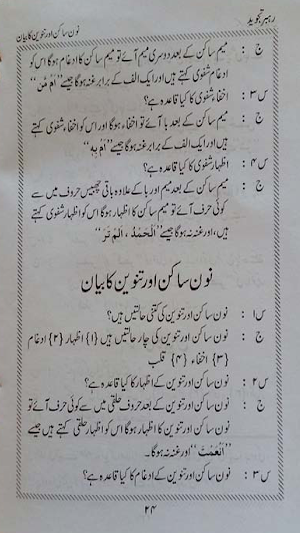 رہبر تجوید
نون ساکن اور تنوین کا بیان
ج : میم ساکن کے بعد دوسری میم آئے تو میم ساکن کا ادغام ہوگا اس کو
ادغام شفوی کہتے ہیں اور ایک الف کے برابر غنہ ہوگا جیسے ”اَمْ مَّنْ“
س۳ : اخفاء شفوی کا کیا قاعدہ ہے؟
ج : میم ساکن کے بعد با آئے تو اخفاء ہوگا اور اس کو اخفاء شفوی کہتے
ہیں اور ایک الف کے برابر غنہ ہوگا جیسے
س۴ : اظہار شفوی کا کیا قاعدہ ہے؟
ج : میم ساکن کے بعد میم اور با کے علاوہ باقی چھبیس حروف میں سے
کوئی حرف آئے تو میم ساکن کا اظہار ہوگا اس کو اظہار شفوی کہتے
ہیں، اور غنہ نہ ہوگا جیسے ”اَلْحَمْدُ ، اَلَمْ تَرَ“
نون ساکن اور تنوین کا بیان
س۱ : نون ساکن اور تنوین کی کتنی حالتیں ہیں؟
ج : نون ساکن اور تنوین کی چار حالتیں ہیں {۱} اظہار {۲} ادغام
{۳} اخفاء {۴} قلب
س۲ : نون ساکن اور تنوین کے اظہار کا کیا قاعدہ ہے؟
ج : نون ساکن اور تنوین کے بعد حروف حلقی میں سے کوئی حرف آئے تو
نون ساکن اور تنوین کا اظہار ہوگا اس کو اظہار حلقی کہتے ہیں جیسے
”اَنْعَمْتَ“ اور غنہ نہ ہوگا۔
س۳ : نون ساکن اور تنوین کے ادغام کا کیا قاعدہ ہے؟
۲۴